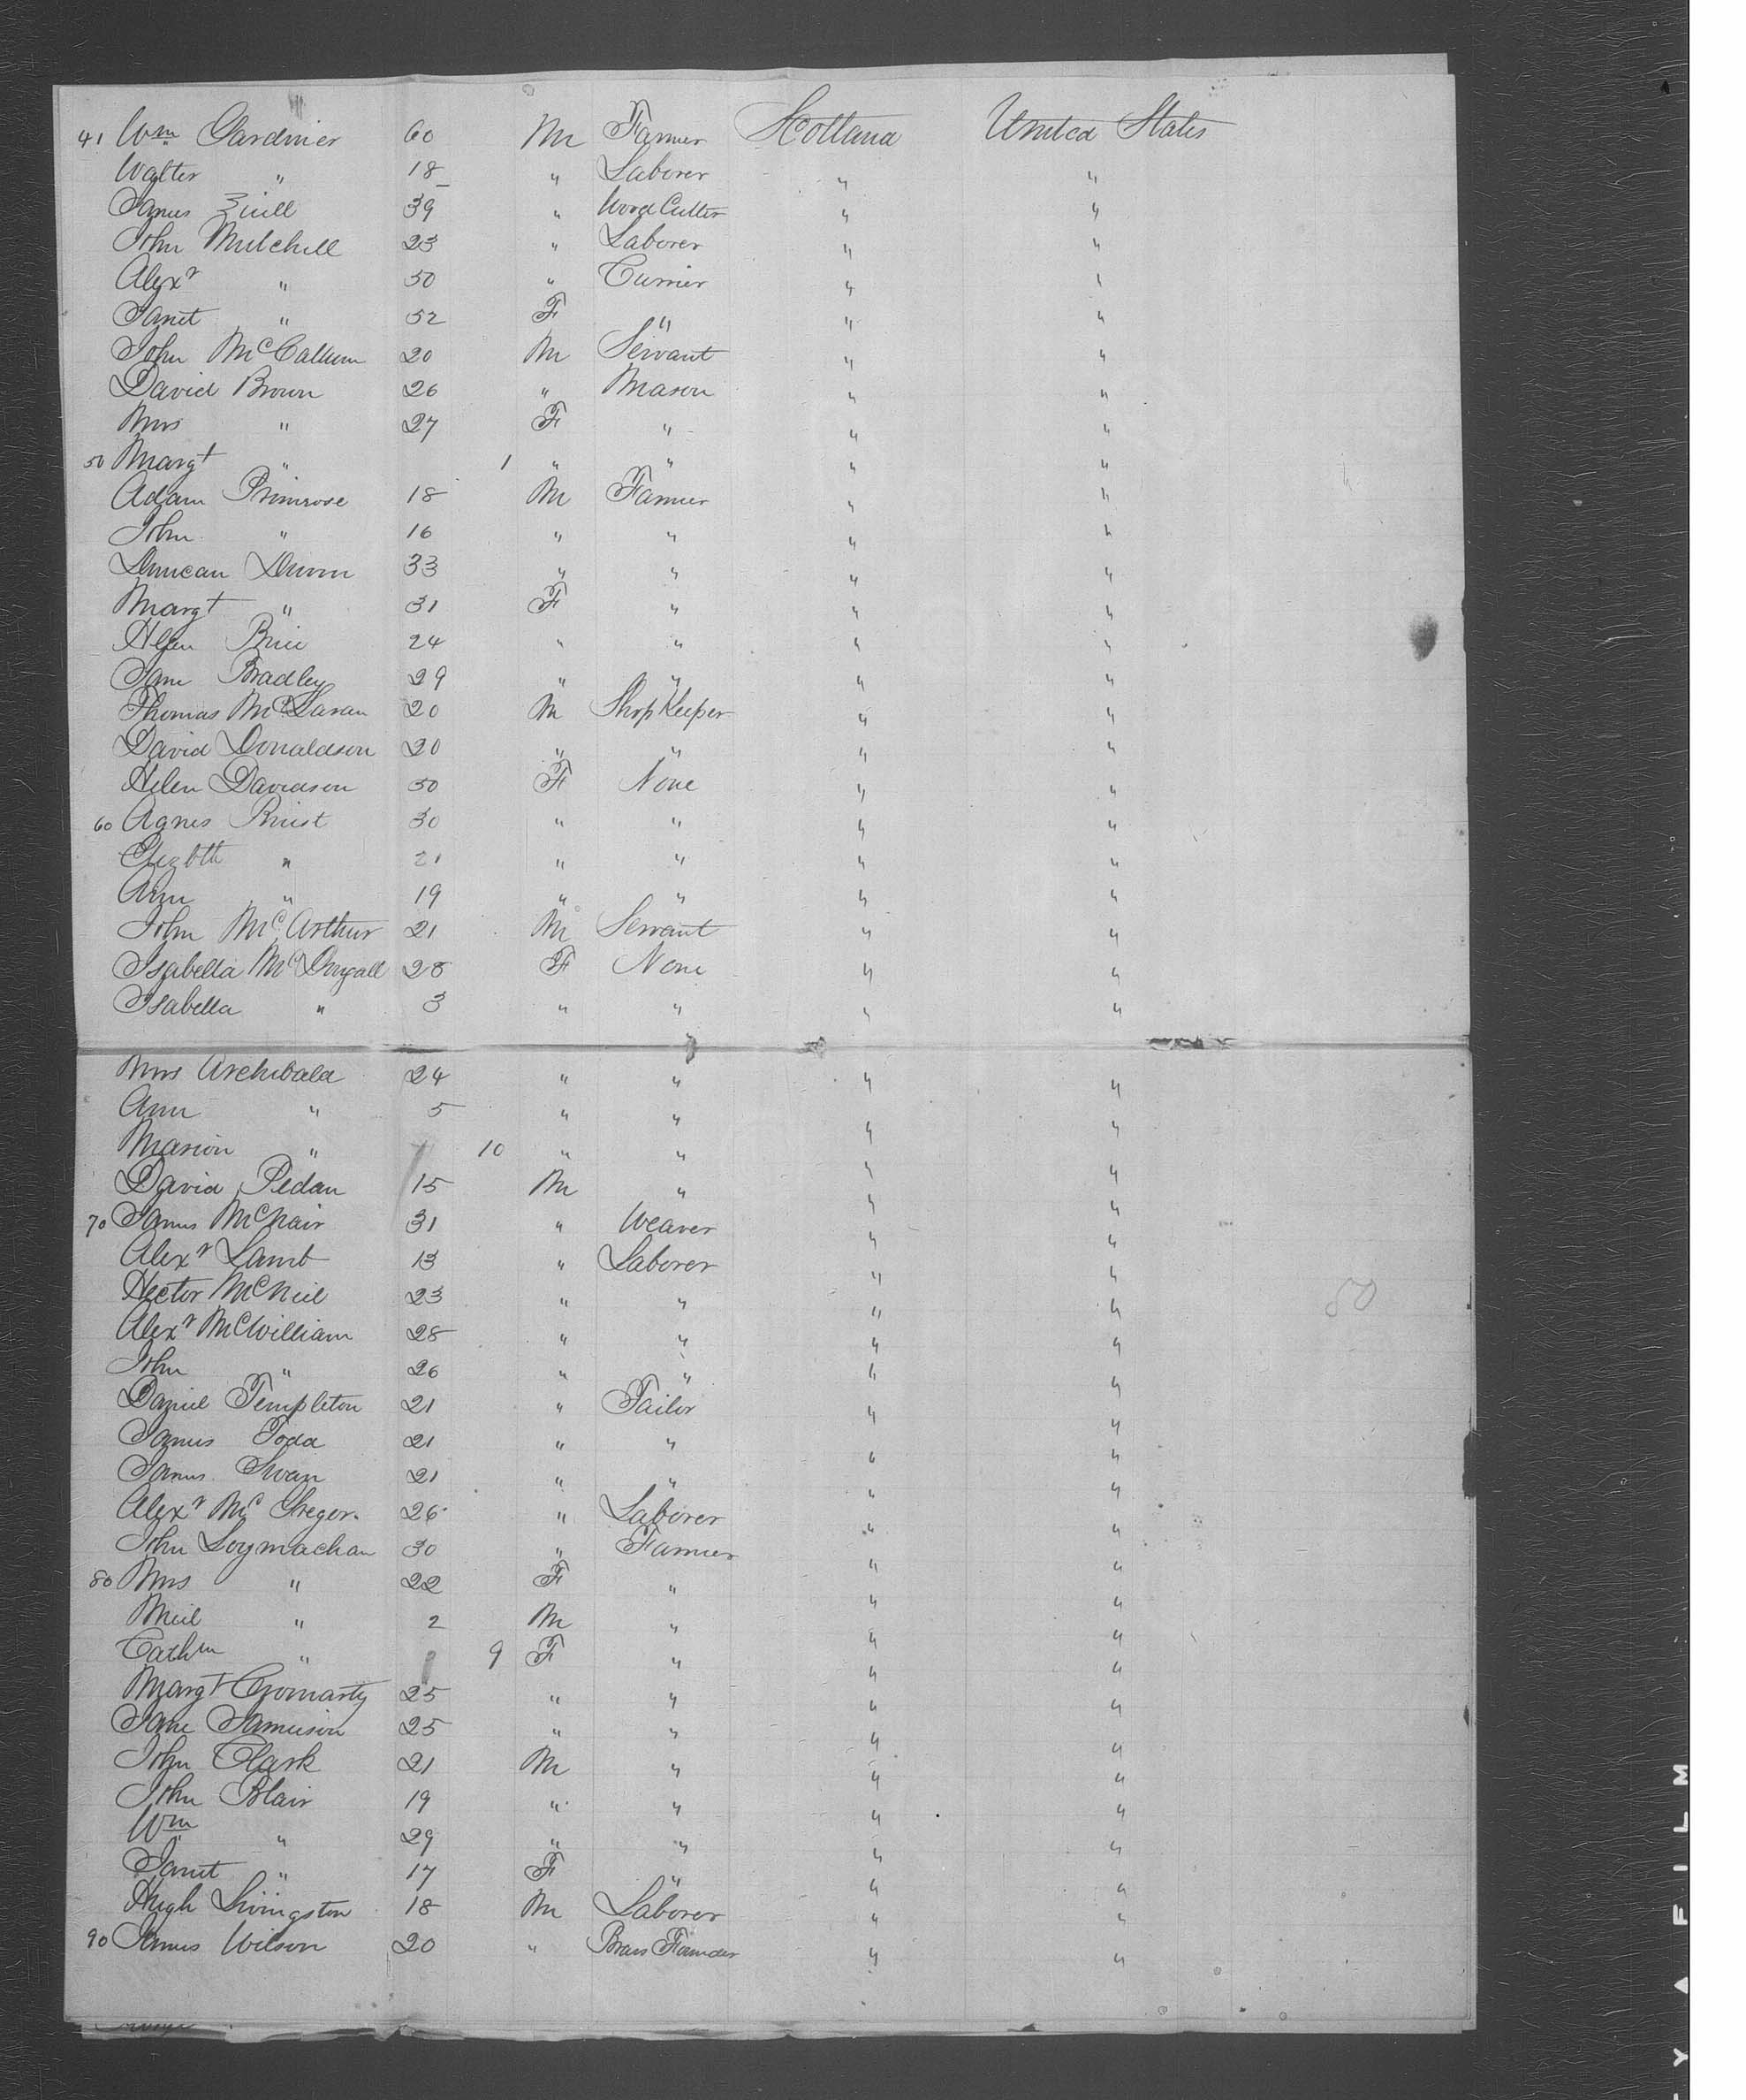 41 Wm Gardiner 60 M Farmer Scotland United States
Walter " 18 " Laborer " "
James Zuill 39 " Wood Cutter " "
John Mitchell 23 " Laborer " "
Alexr " 50 " Currier " "
Janet " 52 F " " "
John McCallum 20 M Servant " "
David Brown 26 " Mason " "
Mrs " 27 F " " "
50 Margt " 1 " " " "
Adam Primrose 18 M Farmer " "
John " 16 " " " "
Duncan Dunn 33 " " " "
Margt " 31 F " " "
Helen Brice 24 " " " "
Jane Bradley 29 " " " "
Thomas McLaran 20 M Shop Keeper " "
David Donaldson 20 " " " "
Helen Davidson 50 F None " "
60 Agnes Priest 30 " " " "
Elizbth " 21 " " " "
Ann " 19 " " " "
John McArthur 21 M Servant " "
Isabella McDougall 28 F None " "
Isabella " 3 " " " "
Mrs Archibald 24 " " " "
Ann " 5 " " " "
Marion " 10 " " " "
David Pedan 15 M " " "
70 James McNair 31 " Weaver " "
Alexr Lamb 13 " Laborer " "
Hector McNeil 23 " " " "
Alexr McWilliam 28 " " " "
John " 26 " " " "
Daniel Templeton 21 " Tailor " "
James Todd 21 " " " "
James Swan 21 " " " "
Alexr McGregor 26 " Laborer " "
John Loymachan 30 " Farmer " "
80 Mrs " 22 F " " "
Neil " 2 M " " "
Cathn " 9 F " " "
Margt Cromarty 25 " " " "
Jane Jamieson 25 " " " "
John Clark 21 M " " "
John Blair 19 " " " "
Wm " 29 " " " "
Janet " 17 F " " "
Hugh Livingston 18 M Laborer " "
90 James Wilson 20 " Brass Founder " "
50